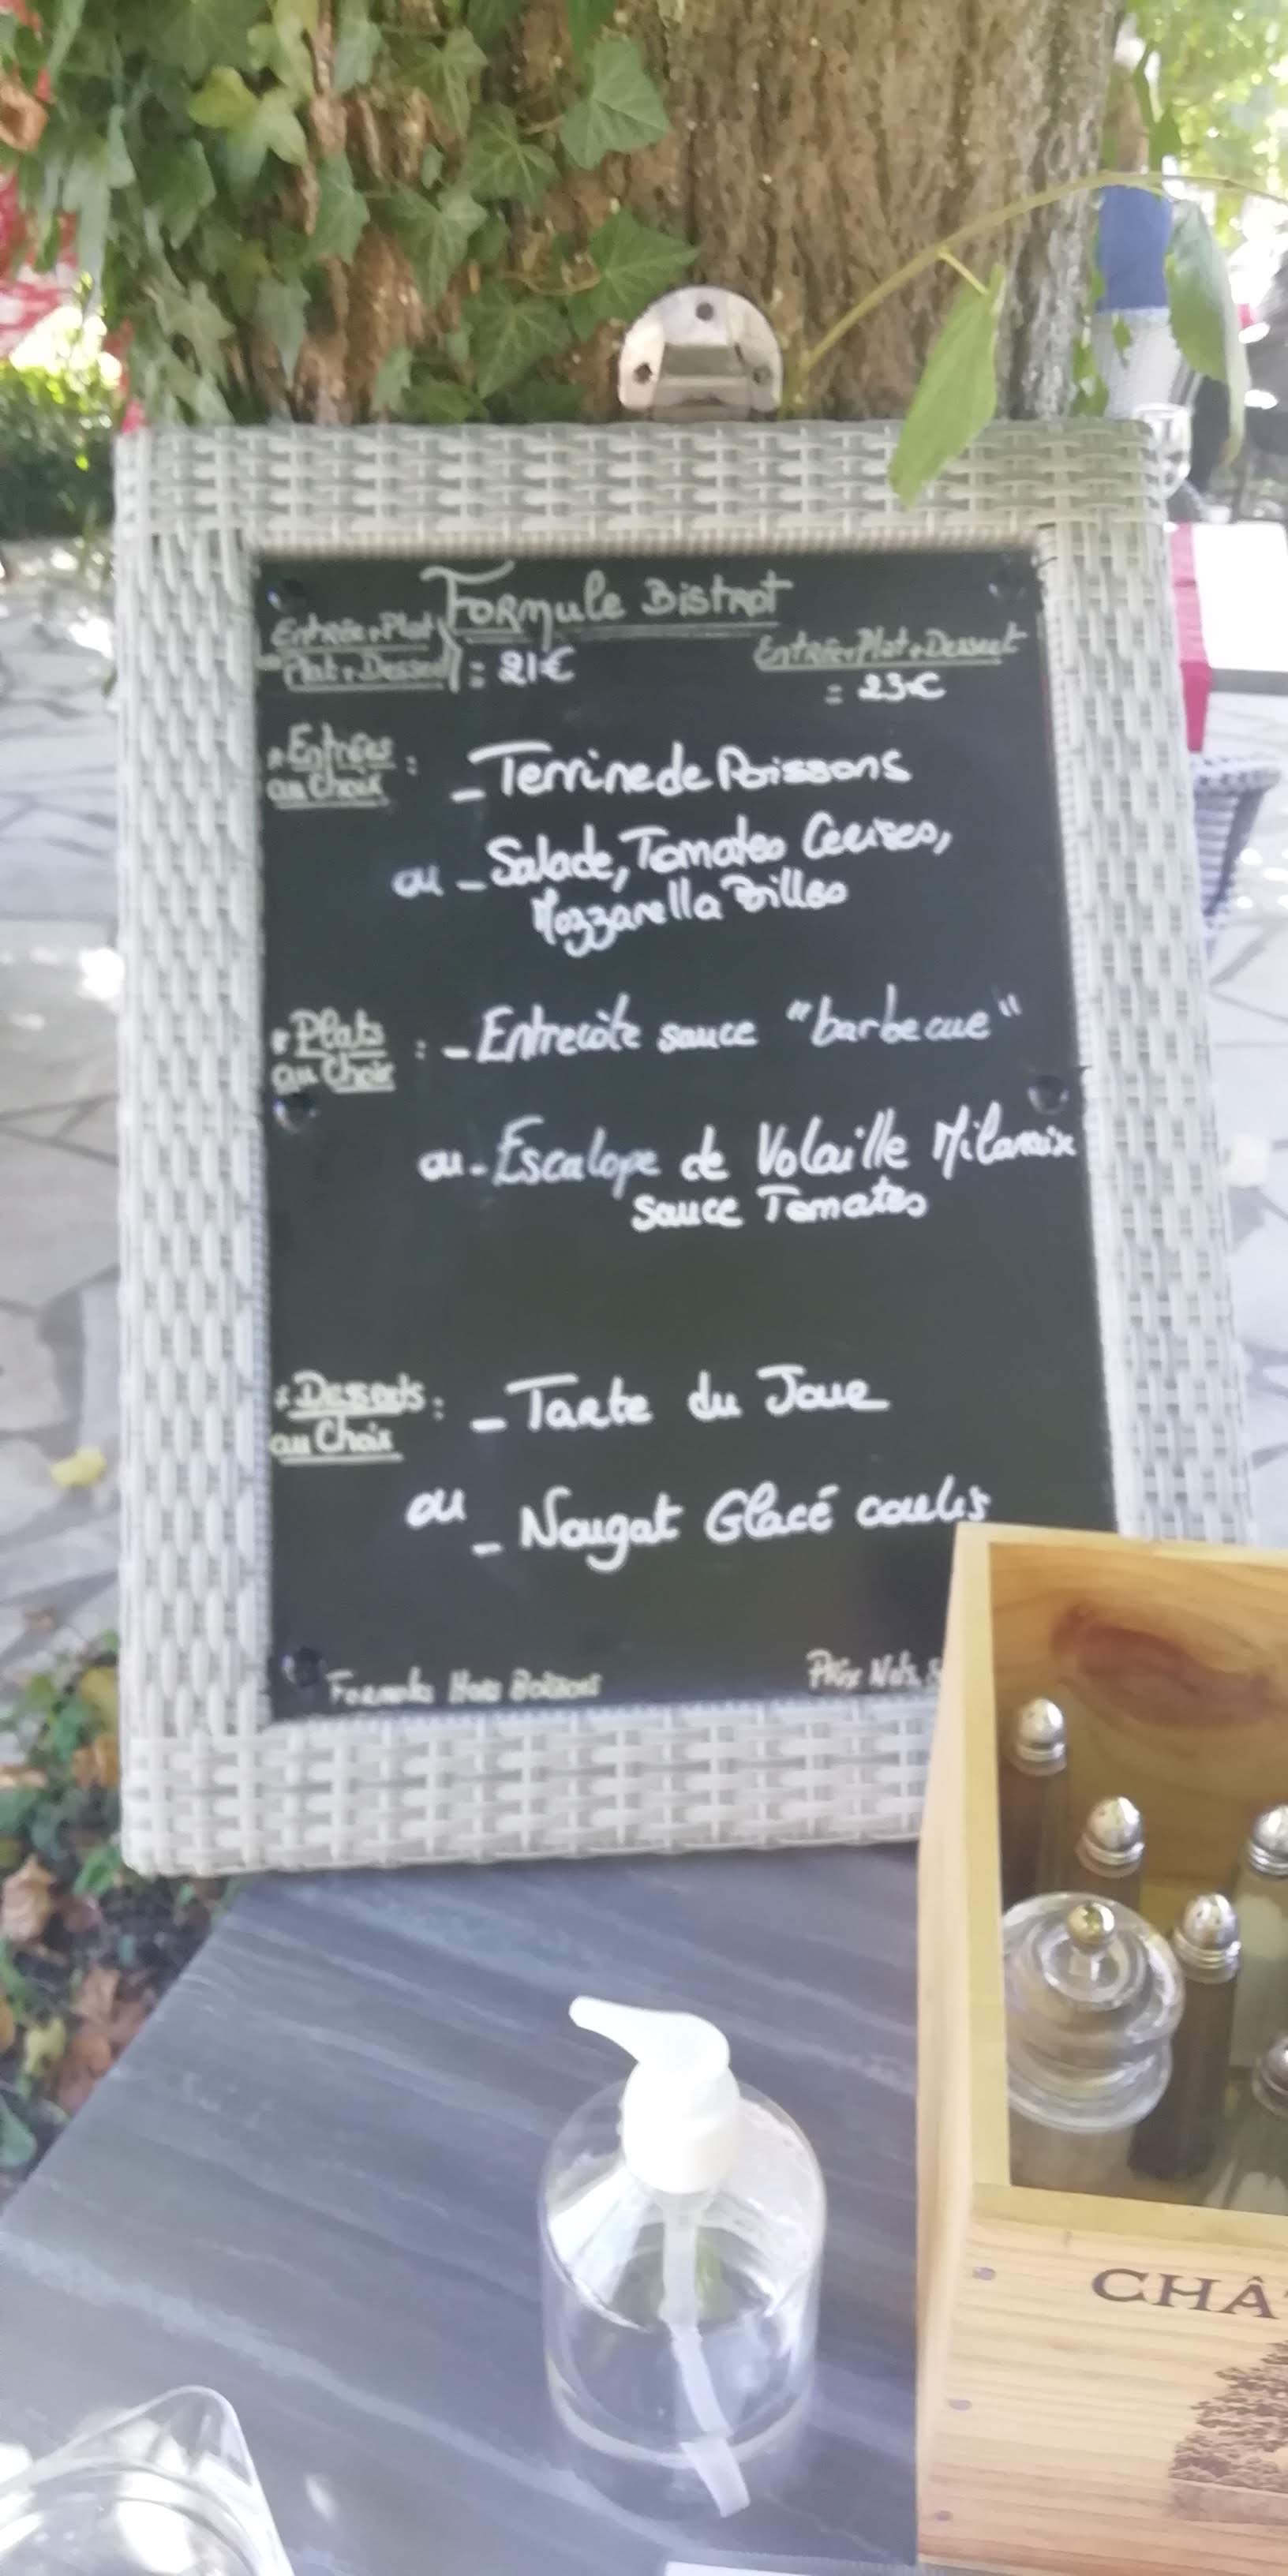 Formule Bistrot
Entrée+Plat
Plat+Dessert = 21€
Entrée+Plat+Dessert
= 23€
* Entrées
au Choix :
- Terrine de Poissons
ou - Salade, Tomates Cerises,
Mozzarella Billes
* Plats
au Choix :
- Entrecôte sauce "barbecue"
ou - Escalope de Volaille Milanaise
sauce Tomates
* Desserts :
au Choix
- Tarte du Jour
ou
- Nougat Glacé coulis
Formules Hors Boissons
Prix Nets,
CHÂ